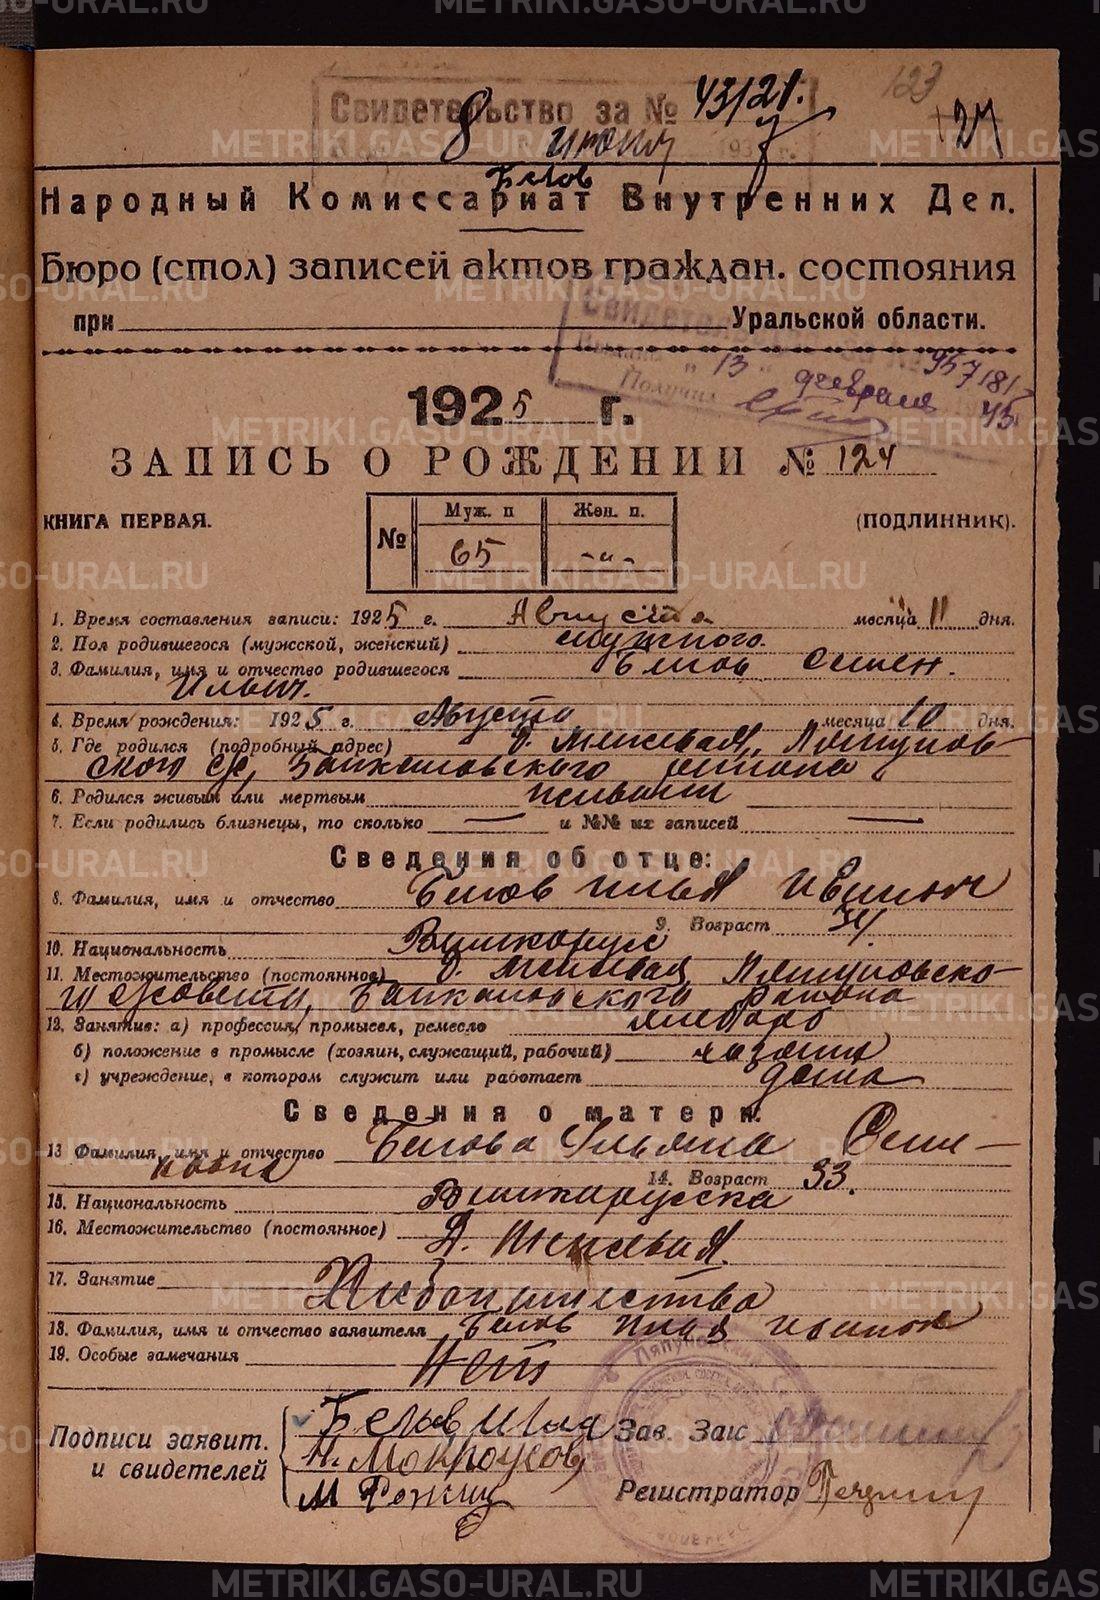 123
Свидетельство за № 43/21.
8 июня 193 г.
124
Белов
Народный Комиссариат Внутренних Дел.
Бюро (стол) записей актов граждан. состояния
при Уральской области.
13 февраля 45
1925 г.
ЗАПИСЬ О РОЖДЕНИИ № 124
КНИГА ПЕРВАЯ.
(ПОДЛИННИК).
№ Муж. п Жен. п.
65 -"-
1. Время составления записи: 1925 г. Августа месяца 11 дня.
2. Пол родившегося (мужской, женский) мужского.
3. Фамилия, имя и отчество родившегося Белов Семен.
Ильич.
4. Время рождения: 1925 г. Августа месяца 10 дня.
5. Где родился (подробный адрес) д. Межевая, Ляпунов-
ского с/с, Байкаловского района
6. Родился живым или мертвым живым
7. Если родились близнецы, то сколько — и №№ их записей —
Сведения об отце:
8. Фамилия, имя и отчество Белов Илья Иванович
9. Возраст 34.
10. Национальность Великорус
11. Местожительство (постоянное) д. Межевая Ляпуновско-
го с/совета, Байкаловского района
12. Занятие: а) профессия, промысел, ремесло хлебороб
б) положение в промысле (хозяин, служащий, рабочий) хозяин
в) учреждение, в котором служит или работает дома
Сведения о матери.
13 Фамилия, имя и отчество Белова Ульяна Семе-
новна
14. Возраст 33.
15. Национальность Великорусска
16. Местожительство (постоянное) Д. Межевая
17. Занятие Хлебопашество
18. Фамилия, имя и отчество заявителя Белов Илья Иванов
19. Особые замечания Нет
Подписи заявит.
и свидетелей
Белов Илья
Н. Мокроусов
М
Зав. Загс
Регистратор
METRIKI.GASO-URAL.RU